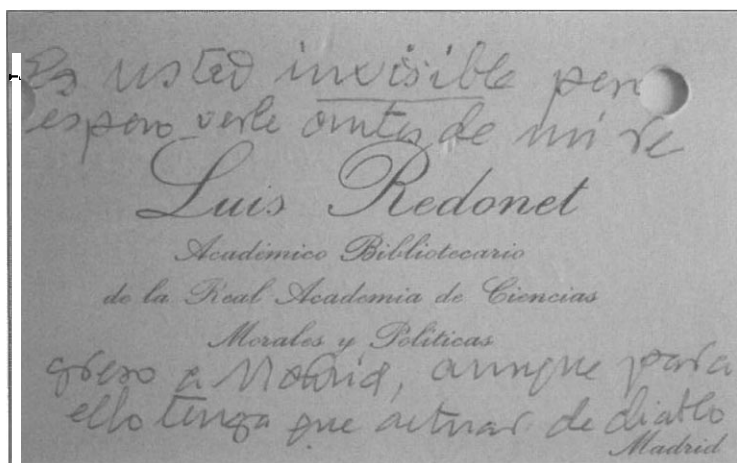 Es usted invisible pero
espero verle antes de mi re
Luis Redonet
Académico Bibliotecario
de la Real Academia de Ciencias
Morales y Políticas
greso a Madrid, aunque para
ello tenga que actuar de diablo
Madrid